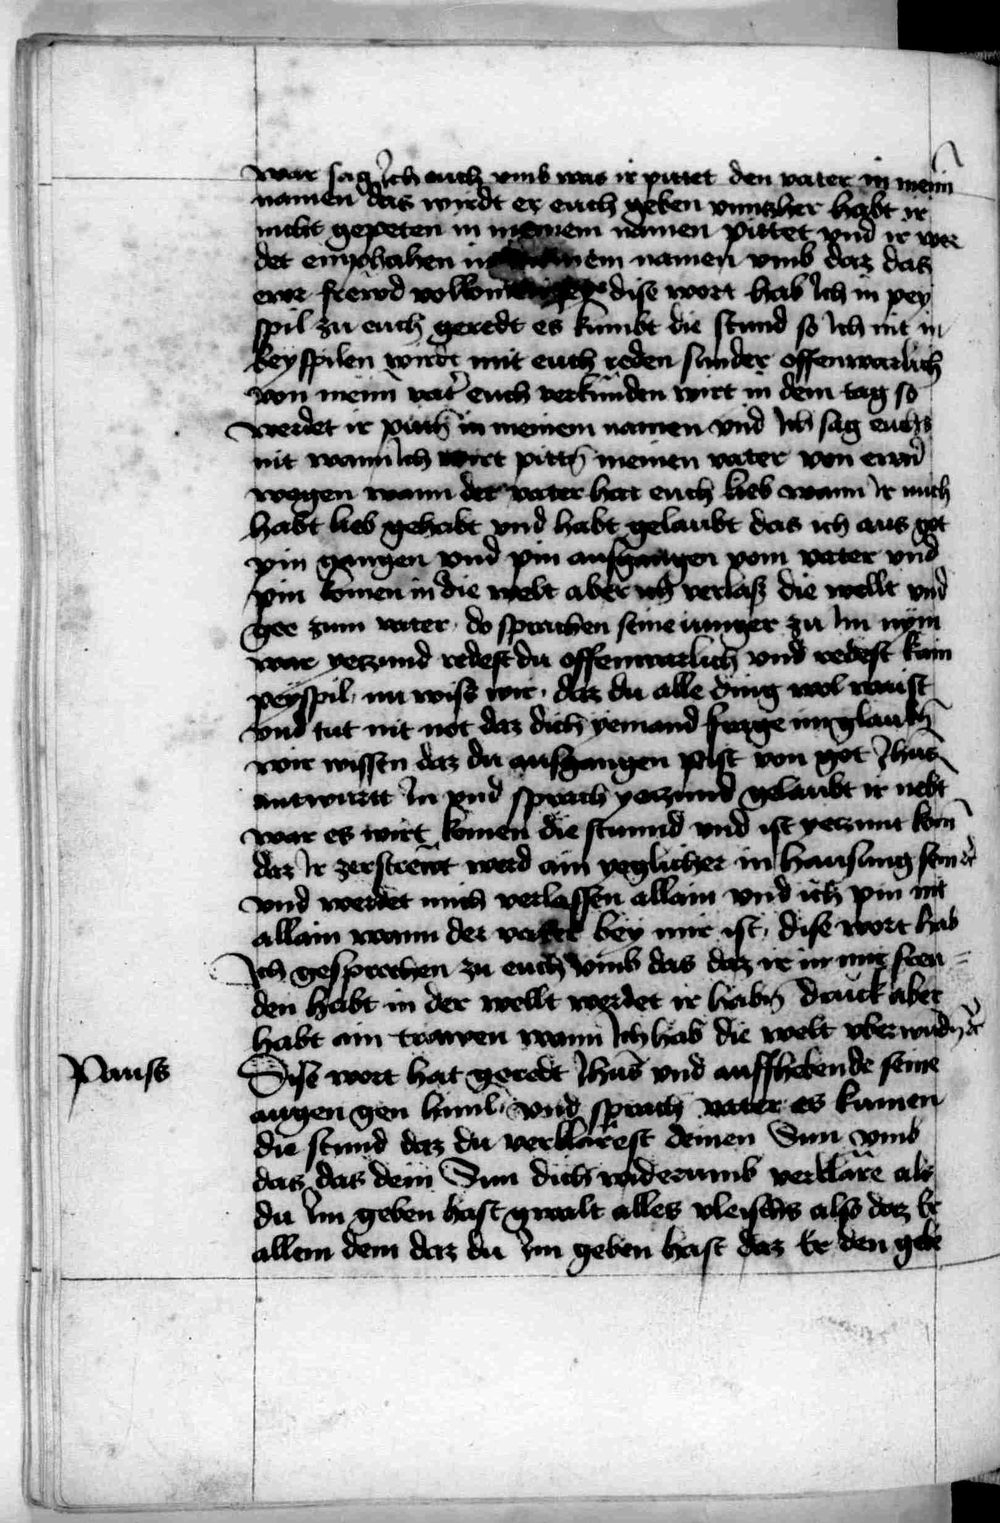 war sag Ich euch vmb was ir pittet den vater in mein̄
namen das wirdt er euch geben vnntzher habt ir
nicht gepeten in meinem namen pittet vnd ir wer
det einphahen in namen vmb daz das
ewr frewd dise wort hab Ich in pey
spil zu euch geredt es kumbt die stund so Ich nit in
beyspilen wirdt mit euch reden sunder offenwarlich
von mein̄ vat̄ euch verkunden wirt in dem tag so
werdet ir pittn̄ in meinem namen vnd Ich sag euchs
nit wann Ich wirt pittn̄ meinen vater von ewrn̄
wegen wann der vater hat euch lieb wann Ir mich
habt lieb gehabt vnd habt gelaubt das ich aus got
pin gangen vnd pin ausgangen vom vater vnd
pin komen in die welt aber ich verlass die wellt vnd
gee zum vater. do sprachen seine iunger zu Im nym
war yetzund redest du offenwarlich vnd redest kain
peyspil. nu wiss wir. daz du alle ding wol waist
vnd tut nit not daz dich yemand frage im glaubn̄
wir wissen daz du ausgangen pist von got Jhūs
antwurtt In vnd sprach yetzund gelaubt ir nebt
war es wirt komen die stunnd vnd ist yetzunt kom̄
daz Ir zerstrewt werd ain yeglicher in hausung sein
vnd werdet mich verlassen allain vnd ich pin nit
allain wann der vater bey mir ist. dise wort hab
Ich gesprochen zu euch vmb das daz ir in mir freu=
den habt in der wellt werdet ir habn̄ druck aber
habt ain trawen wann Ich hab die welt vberwūdn̄
Pauss
Dise wort hat geredt Jhūs vnd auffhebende seine
augen gen himl. vnd sprach vater es kumen
die stund daz du verklarest deinen Sun vmb
das das dein Sun dich widerumb verklare als
du Im geben hast gwalt alles vleischs also daz Er
allem dem daz du Im geben hast daz Er den gebe